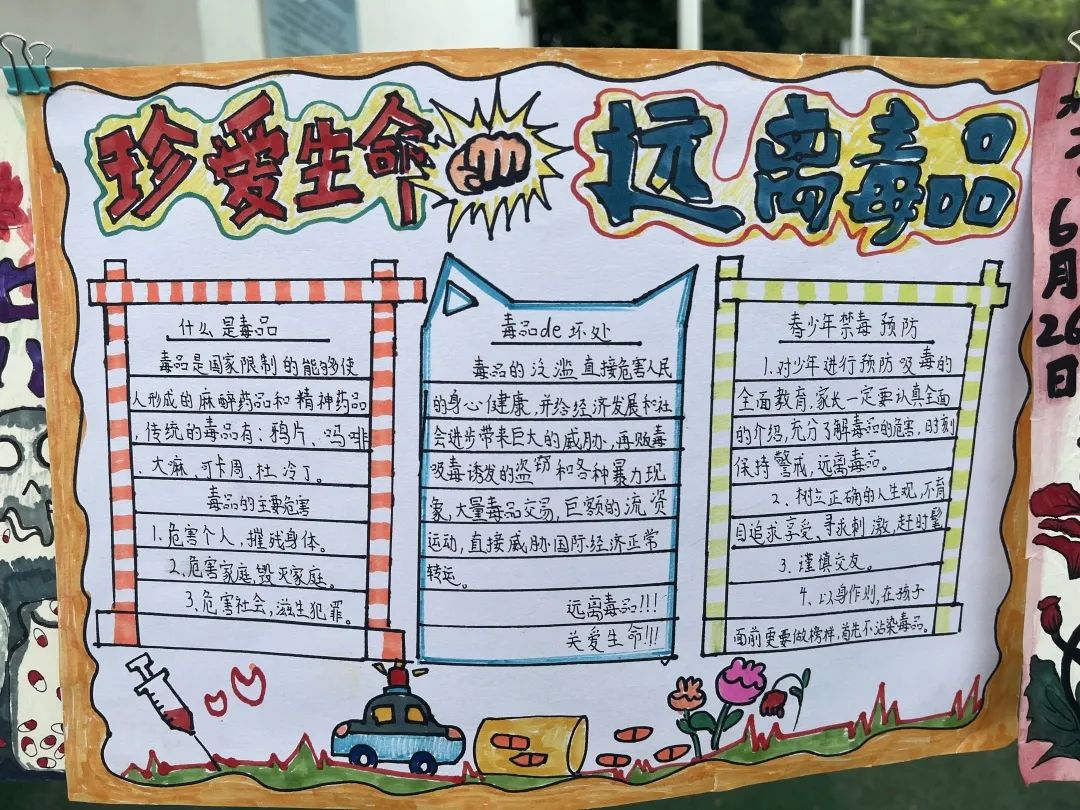 珍爱生命
远离毒品
什么是毒品
毒品是国家限制的能够使
人形成的麻醉药品和精神药品
,传统的毒品有:鸦片、吗啡
、大麻、可卡周、杜冷丁。
毒品的主要危害
1.危害个人,摧残身体。
2.危害家庭,毁灭家庭。
3.危害社会,滋生犯罪。
毒品de坏处
毒品的泛滥直接危害人民
的身心健康,并给经济发展和社
会进步带来巨大的威胁,再贩毒
吸毒诱发的盗窃和各种暴力现
象,大量毒品交易,巨额的流资
运动,直接威胁国际经济正常
转运。
远离毒品!!!
关爱生命!!!
春少年禁毒预防
1.对少年进行预防吸毒的
全面教育.家长一定要认真全面
的介绍,充分了解毒品的危害,时刻
保持警戒,远离毒品。
2、树立正确的人生观,不盲
目追求享受、寻求刺激,赶时髦
3.谨慎交友。
4、以身作则,在孩子
面前更要做榜样,首先不沾染毒品。
6月26日